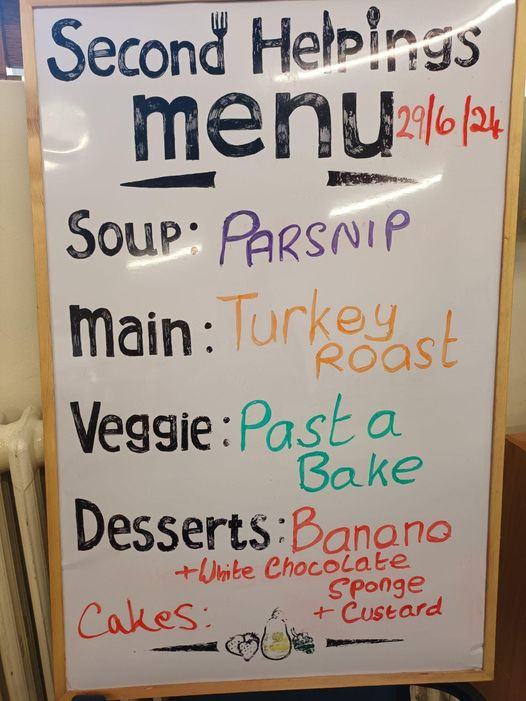 Second Helpings
menu 29/6/24
Soup: PARSNIP
Main: Turkey
Roast
Veggie: Pasta
Bake
Desserts: Banana
+ White Chocolate
Sponge
Cakes: + Custard